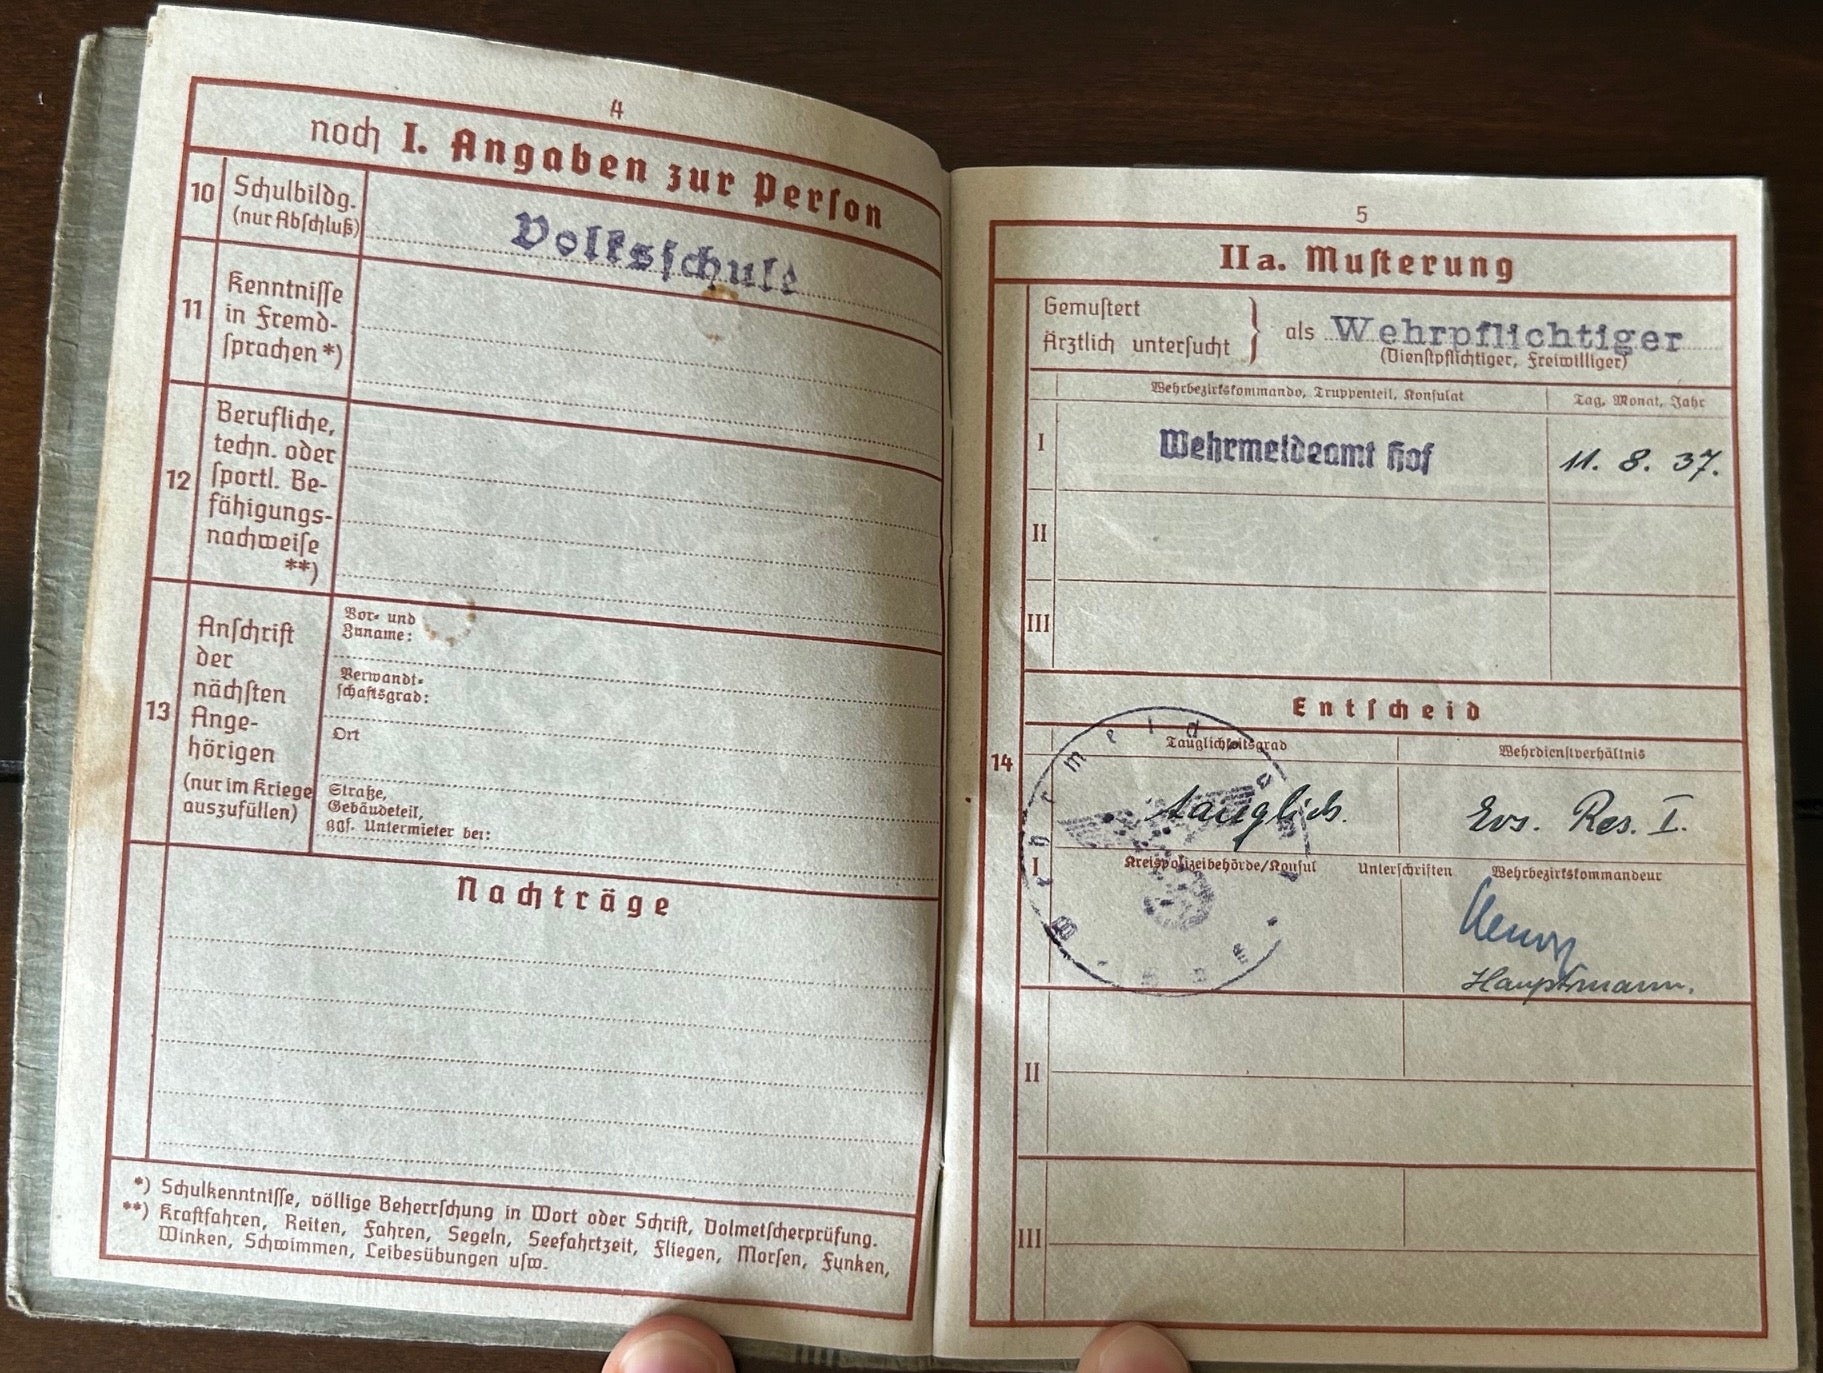 4
noch I. Angaben zur Person
10 Schulbildg.
(nur Abschluß)
Volksschule
11 Kenntnisse
in Fremd-
sprachen *)
12 Berufliche,
techn. oder
sportl. Be-
fähigungs-
nachweise
**)
13 Anschrift
der
nächsten
Ange-
hörigen
(nur im Kriege
auszufüllen)
Vor- und
Zuname:
Verwandt-
schaftsgrad:
Ort
Straße,
Gebäudeteil,
ggf. Untermieter bei:
Nachträge
*) Schulkenntnisse, völlige Beherrschung in Wort oder Schrift, Dolmetscherprüfung.
**) Kraftfahren, Reiten, Fahren, Segeln, Seefahrtzeit, Fliegen, Morsen, Funken,
Winken, Schwimmen, Leibesübungen usw.
5
IIa. Musterung
Gemustert
Ärztlich untersucht
als Wehrpflichtiger
(Dienstpflichtiger, Freiwilliger)
Wehrbezirkskommando, Truppenteil, Konsulat Tag, Monat, Jahr
I Wehrmeldeamt Hof 11. 8. 37.
II
III
Entscheid
14
Tauglichkeitsgrad Wehrdienstverhältnis
tauglich. Ers. Res. I.
I Kreispolizeibehörde/Konsul Unterschriften Wehrbezirkskommandeur
Hauptmann.
II
III